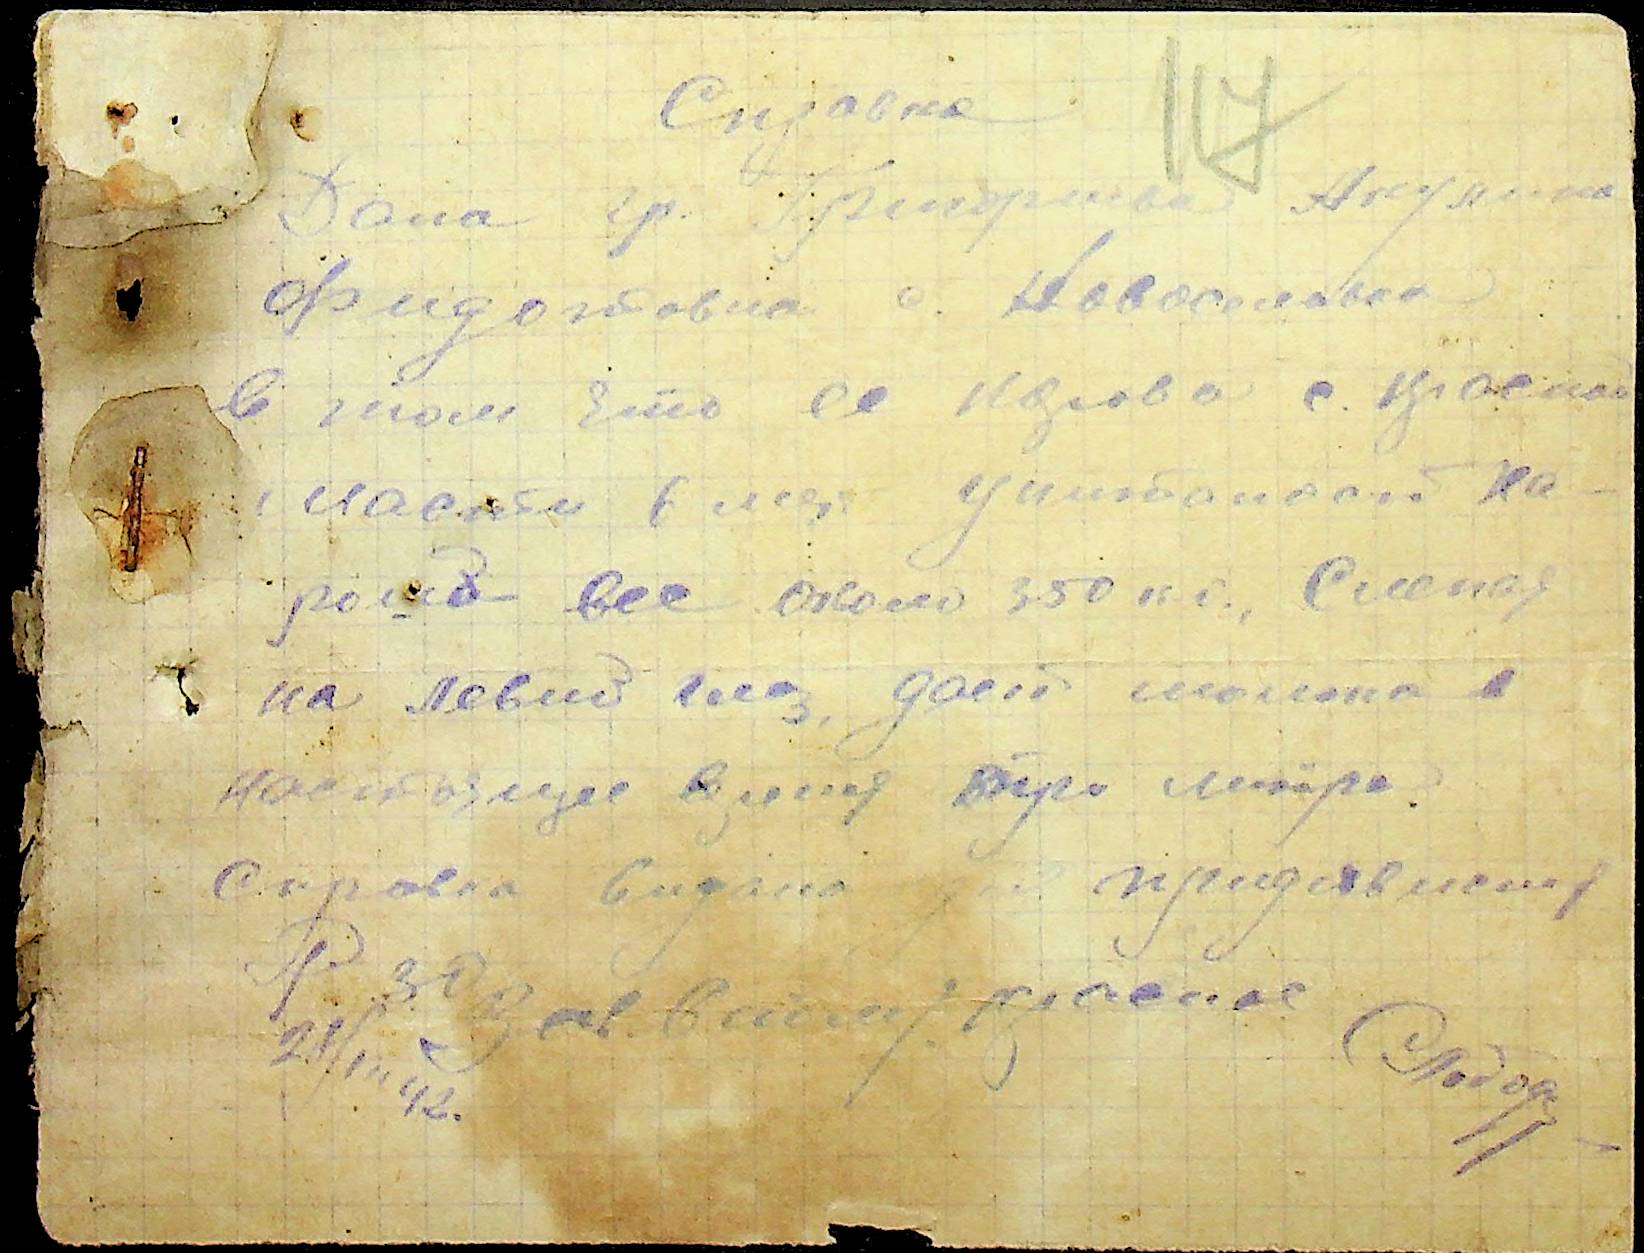 Справка
117
Дана гр. Григорьева Акулина
Фидотовна с. Новоселовка
в том что ее корова с. красной
масти 6 лет упитаност ха-
роша вес около 350 кг., Слепая
на левий глаз, дает молока в
настоящее время литра
Справка видана придявления
Зав. красное
21/III 42.